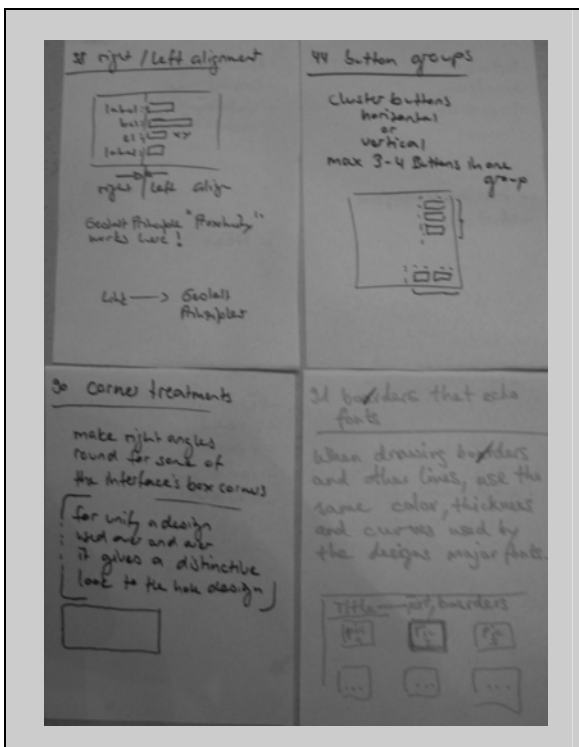 38 right / left alignment
label:
bel:
el: xy
label:
right left align
Gestalt Principle "Proximity"
works here!
Link → Gestalt
Principles
44 button groups
cluster buttons
horizontal
or
vertical
max 3-4 Buttons in one
group
90 corner treatments
make right angles
round for some of
the Interface's box corners
for unify a design
used over and over
it gives a distinctive
look to the hole design
91 boarders that echo
fonts
When drawing boarders
and other lines, use the
same color, thickness
and curves used by
the designs major fonts.
Title boarders
...
...
...